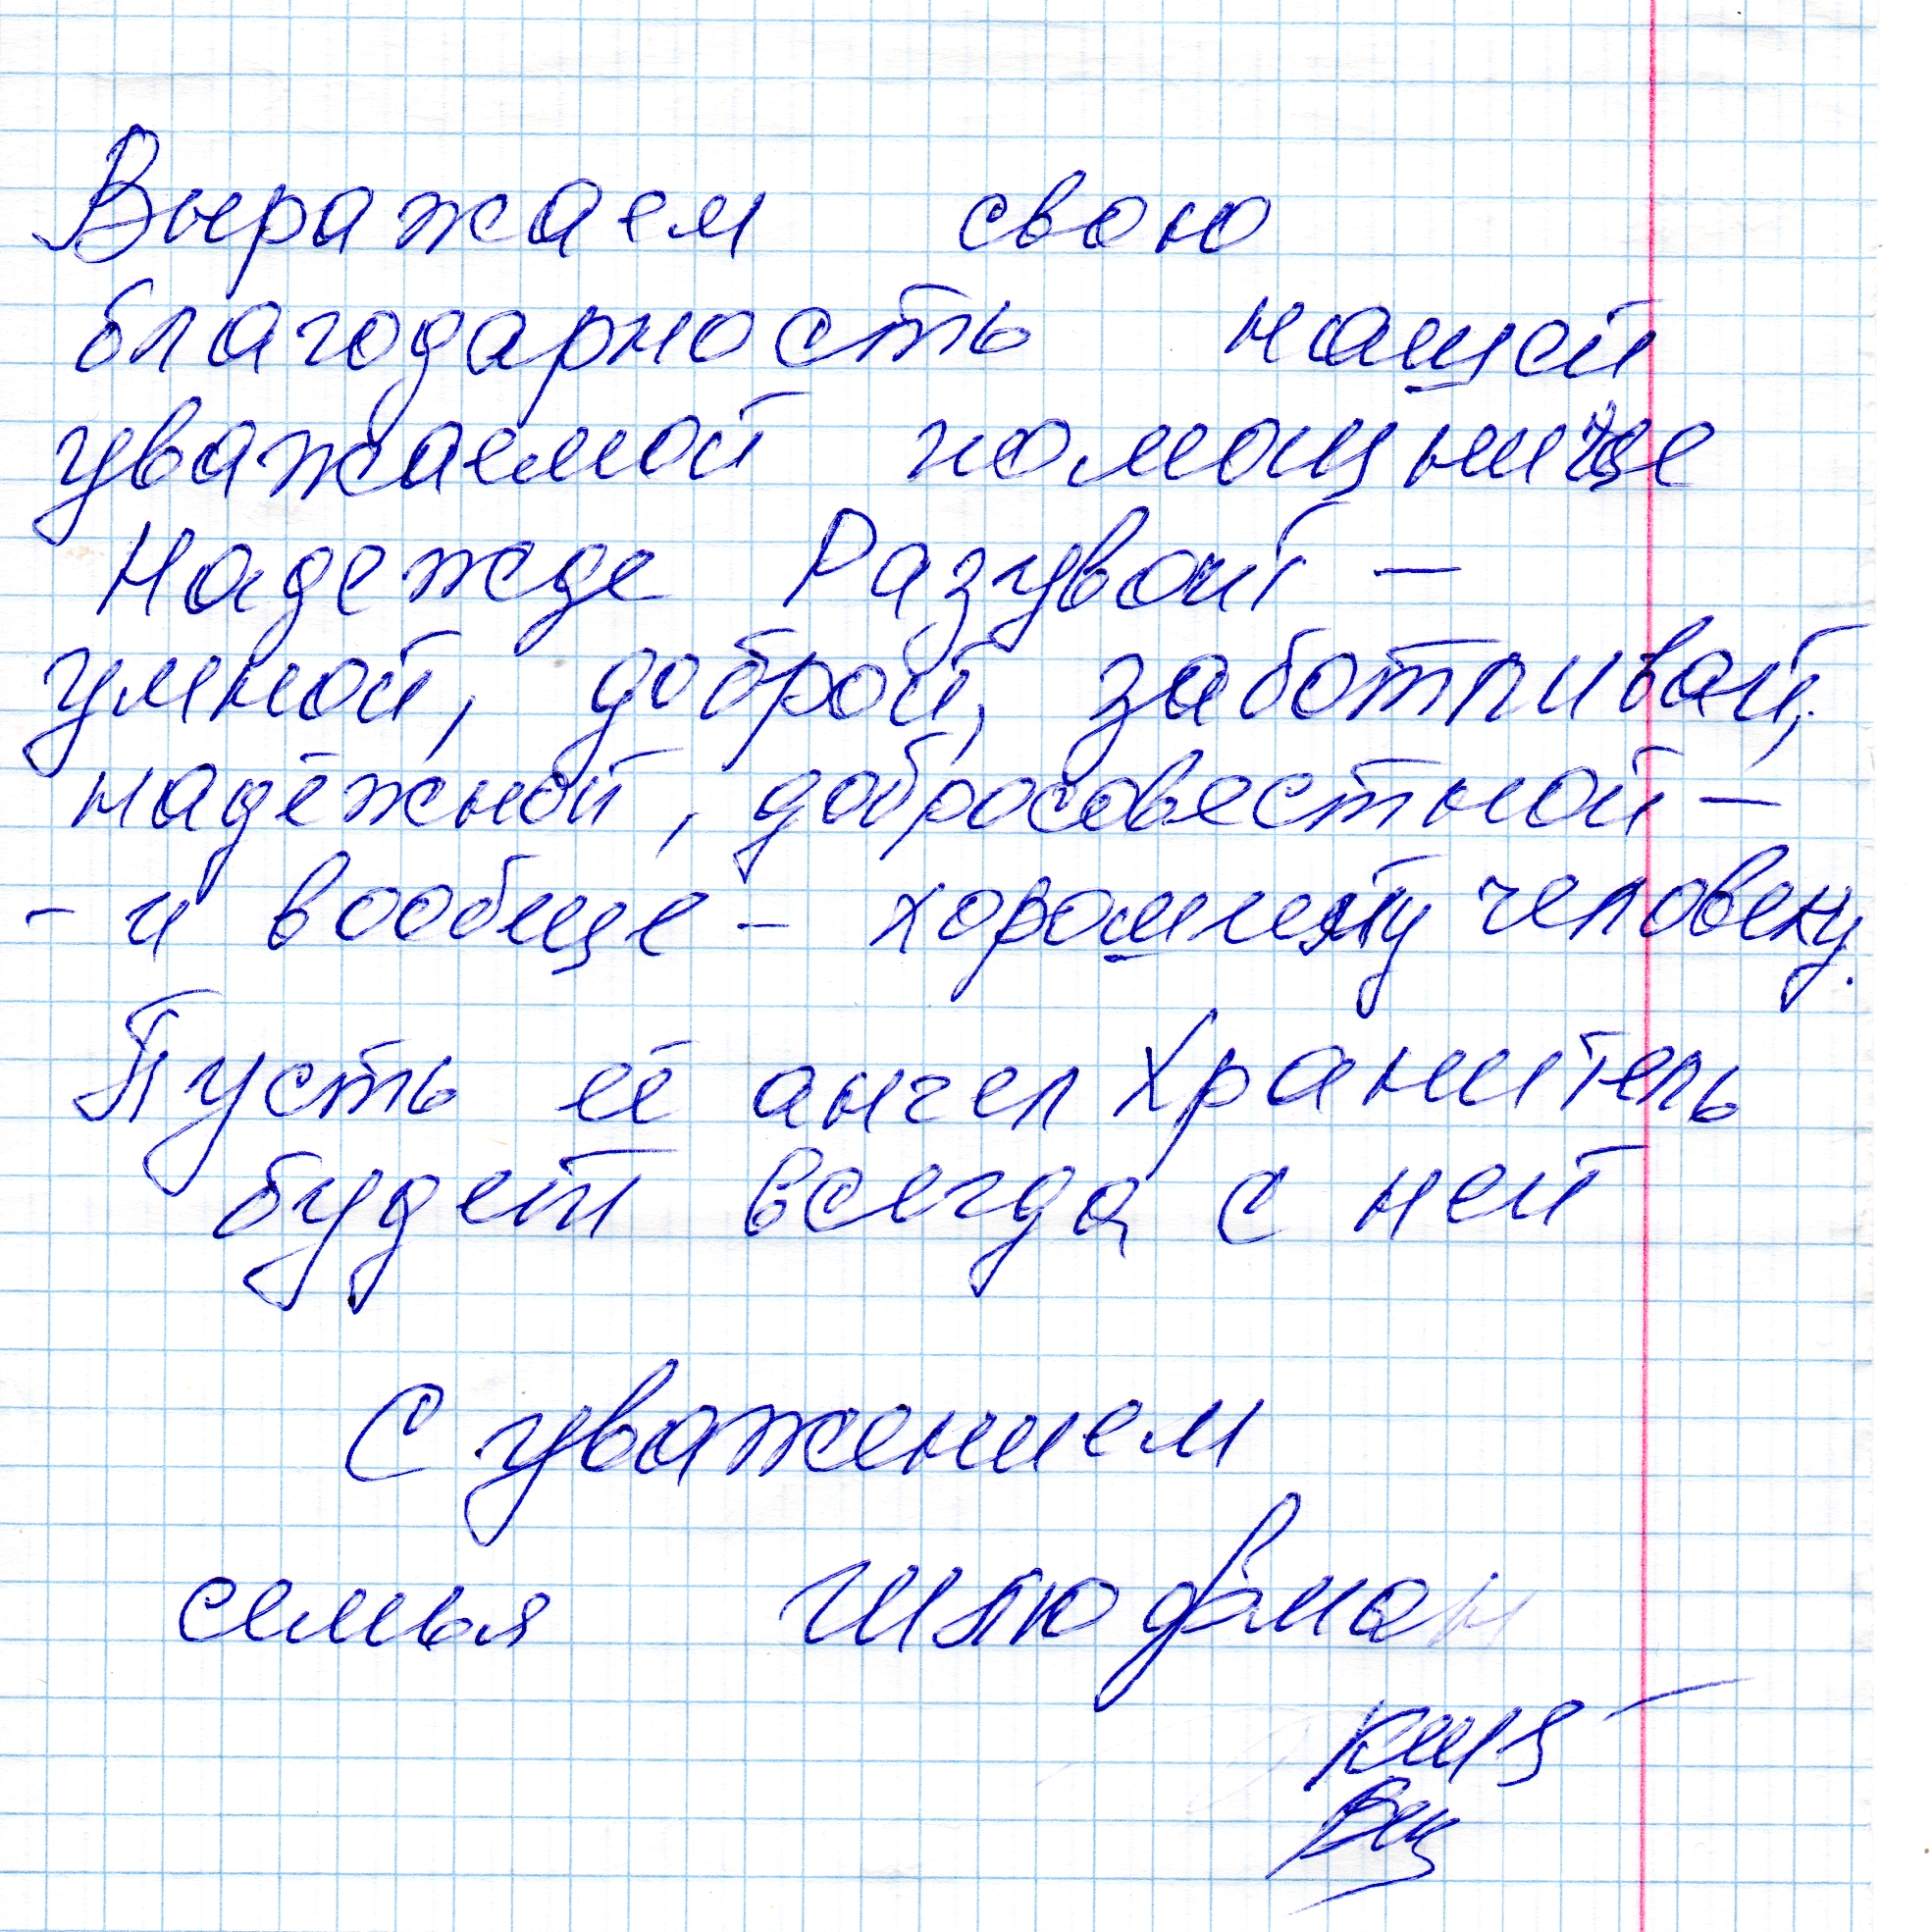 Выражаем свою
благодарность нашей
уважаемой помощнице
Надежде Разувай –
умной, доброй, заботливой,
надёжной, добросовестной –
- и вообще - хорошему человеку.
Пусть её ангел Хранитель
будет всегда с ней
С уважением
семья Шлюфман